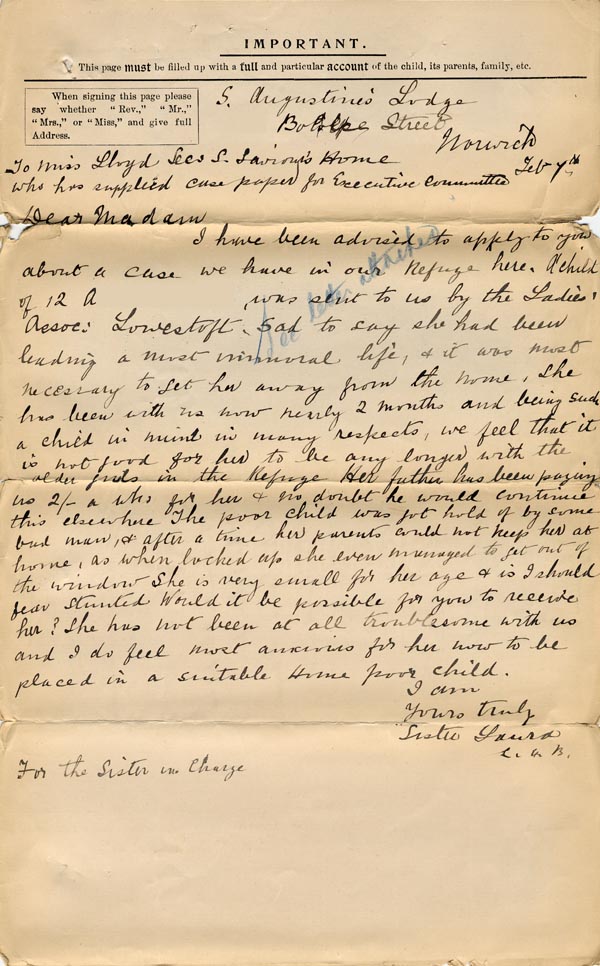 IMPORTANT.
This page must be filled up with a full and particular account of the child, its parents, family, etc.
When signing this page please
say whether "Rev.," "Mr.,"
"Mrs.," or "Miss," and give full
Address.
S. Augustine's Lodge
Street
Norwich
Feb 7th
To Miss Lloyd Sec: S. Saviour's Home
who has supplied case paper for Executive Committee
Dear Madam
I have been advised to apply to you
about a case we have in our Refuge here. A child
of 12 A was sent to us by the Ladies'
Assoc: Lowestoft. Sad to say she had been
leading a most immoral life, & it was most
necessary to get her away from the home. She
has been with us now nearly 2 months and being such
a child in mind in many respects, we feel that it
is not good for her to be any longer with the
older girls in the Refuge Her father has been paying
us 2/- a wk for her & no doubt he would continue
this elsewhere The poor child was got hold of by some
bad man, & after a time her parents could not keep her at
home, as when locked up she even managed to get out of
the window She is very small for her age & is I should
fear stunted Would it be possible for you to receive
her? She has not been at all troublesome with us
and I do feel most anxious for her now to be
placed in a suitable Home poor child.
I am
Yours truly
Sister Laura
For the Sister in Charge
See letter attached